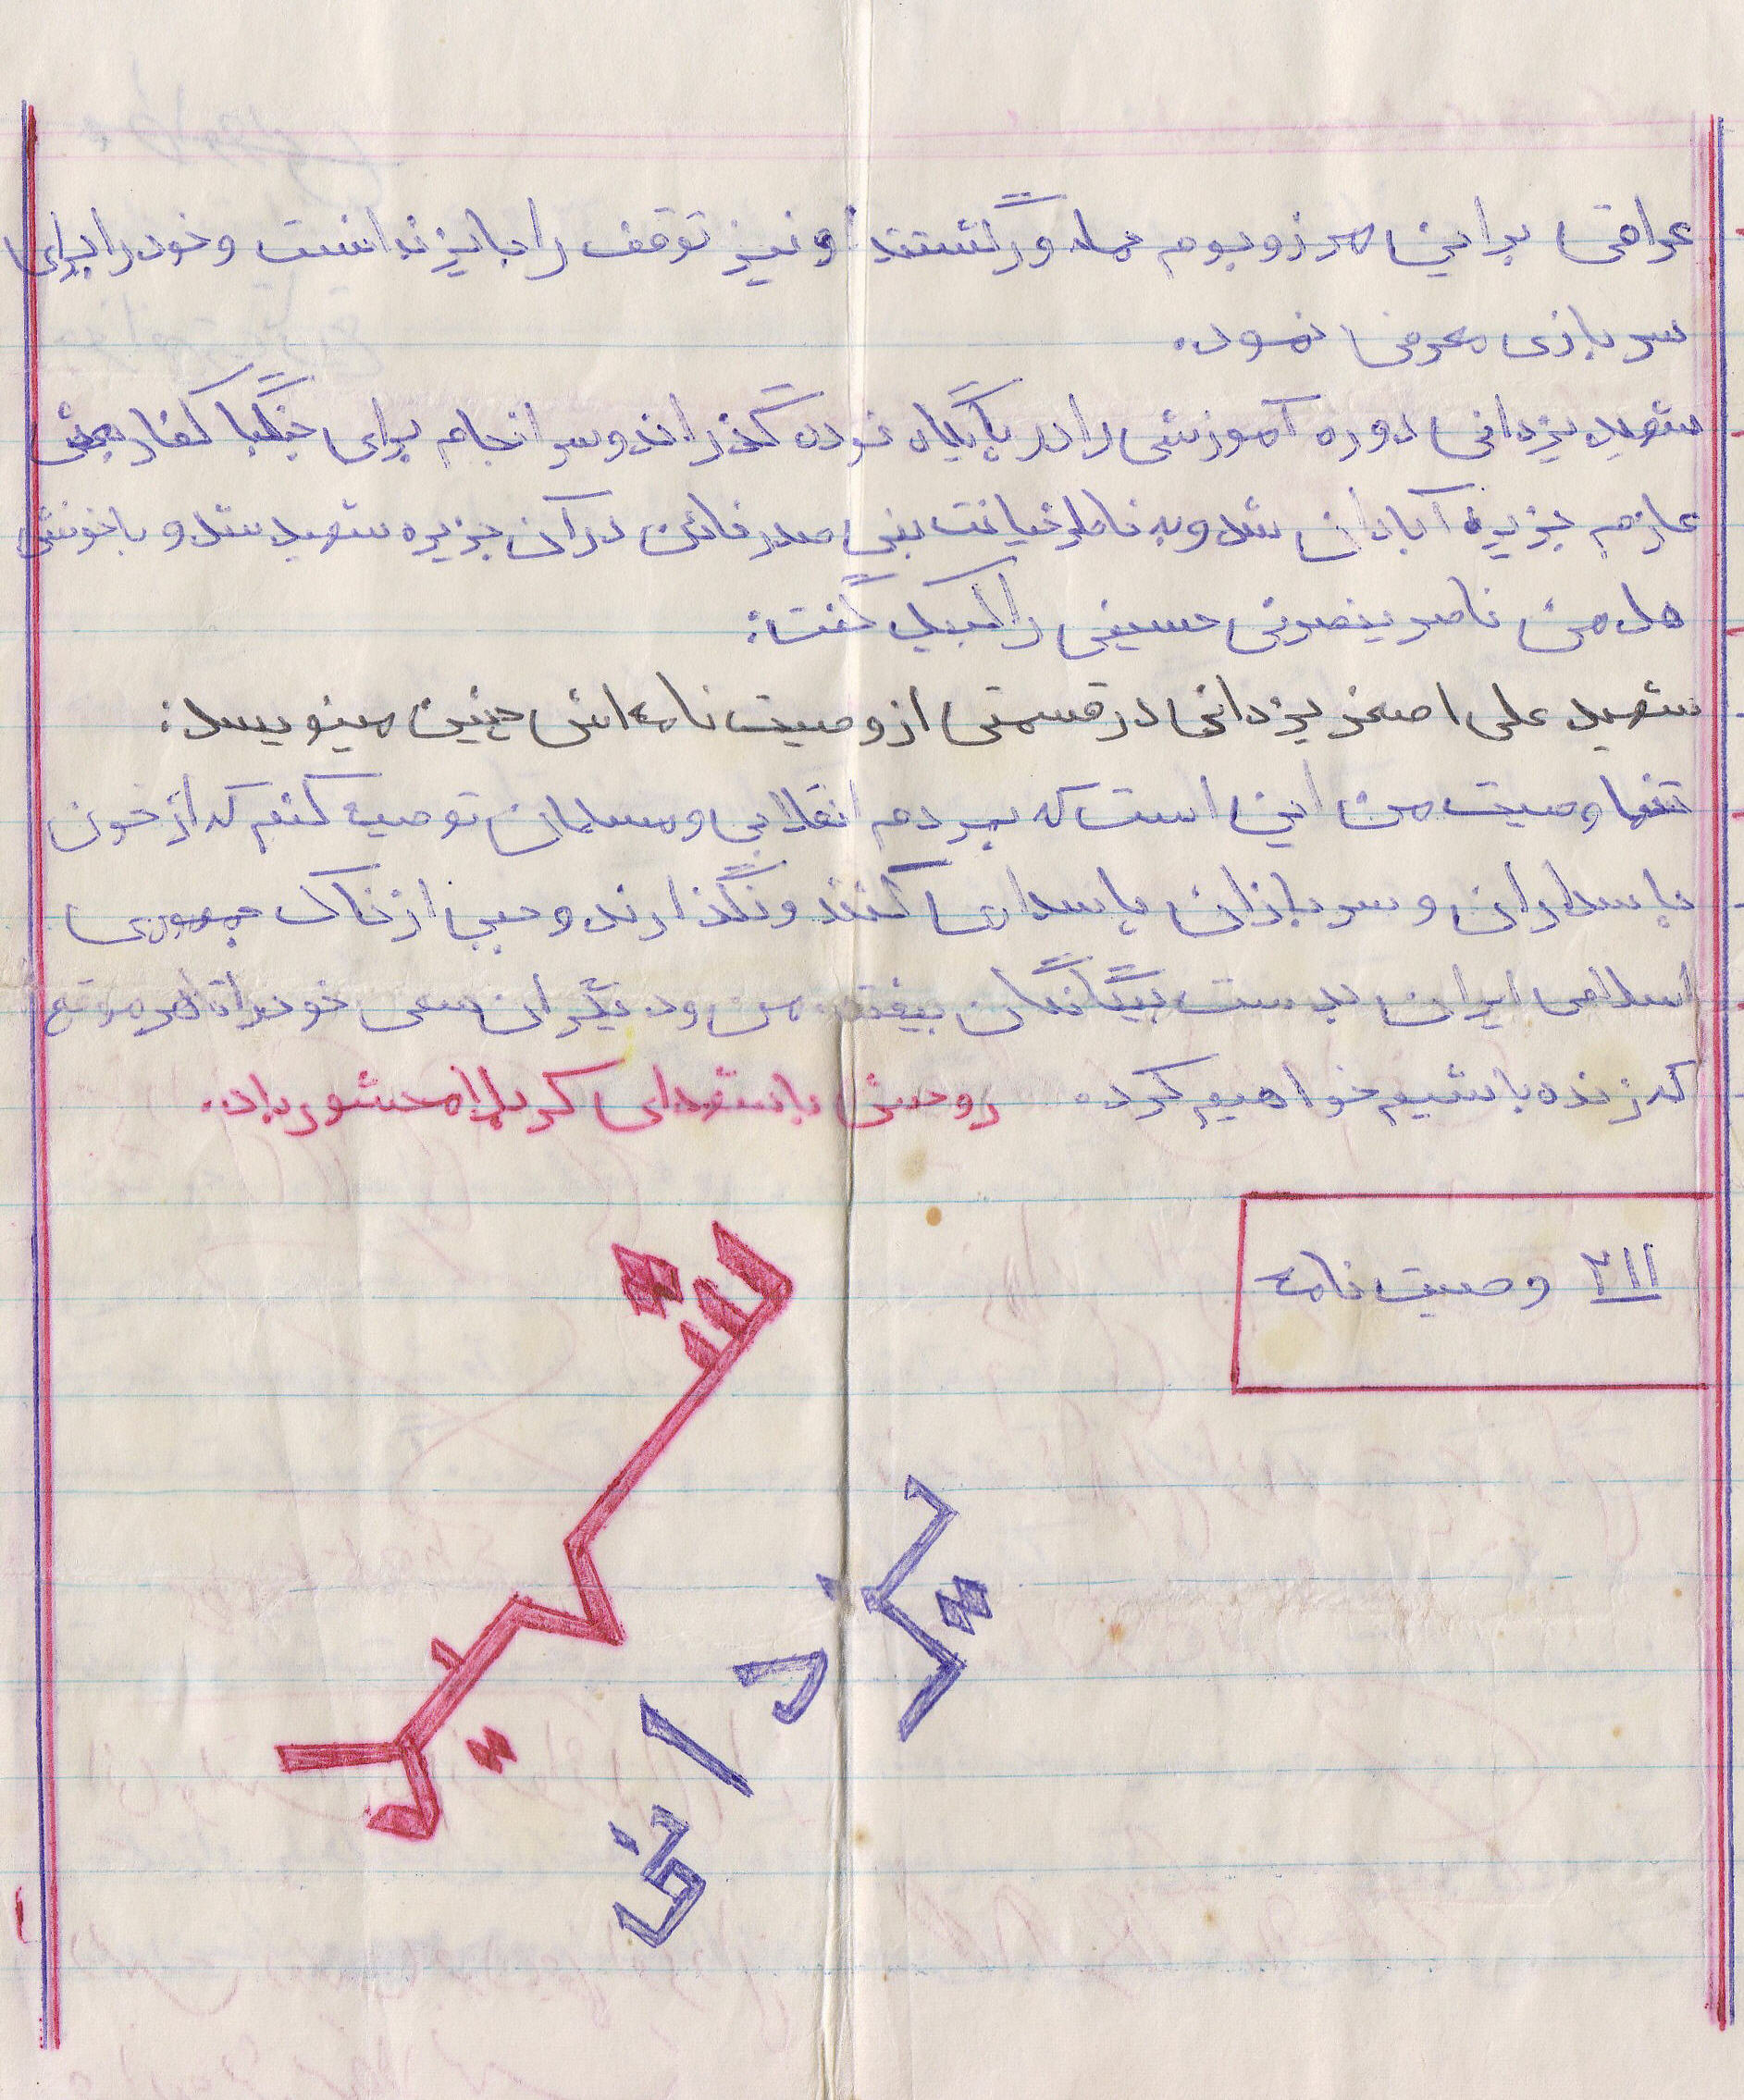 عراقی براین مرز و بوم حمله ور گشتند او نیز توقف را جایز ندانیست و خود را برای
سربازی معرفی نمود.
شهید یزدانی دوره آموزشی را در پایگاه خود گذراند و سرانجام برای جنگ با کفار بعثی
عازم جزیره آبادان شد و به خاطر خیانت بنی صدر خائن در آن جزیره شهید شد و با خونش
هل من ناصر ینصرنی حسینی را لبیک گفت:
شهید علی اصغر یزدانی در قسمتی از وصیت نامه اش چنین مینویسد:
تنها وصیت من این است که بمردم انقلابی و مسلمان توصیه کنم که از خون
پاسداران و سربازان پاسداری کنند و نگذارند وجبی از خاک جمهوری
اسلامی ایران بدست بیگانگان بیفتد. من و دیگران سعی خود را تا هر موقع
که زنده باشیم خواهیم کرد. روحش با شهدای کربلا محشور باد.
۲۱۱ وصیت نامه
شهید
یزدانی